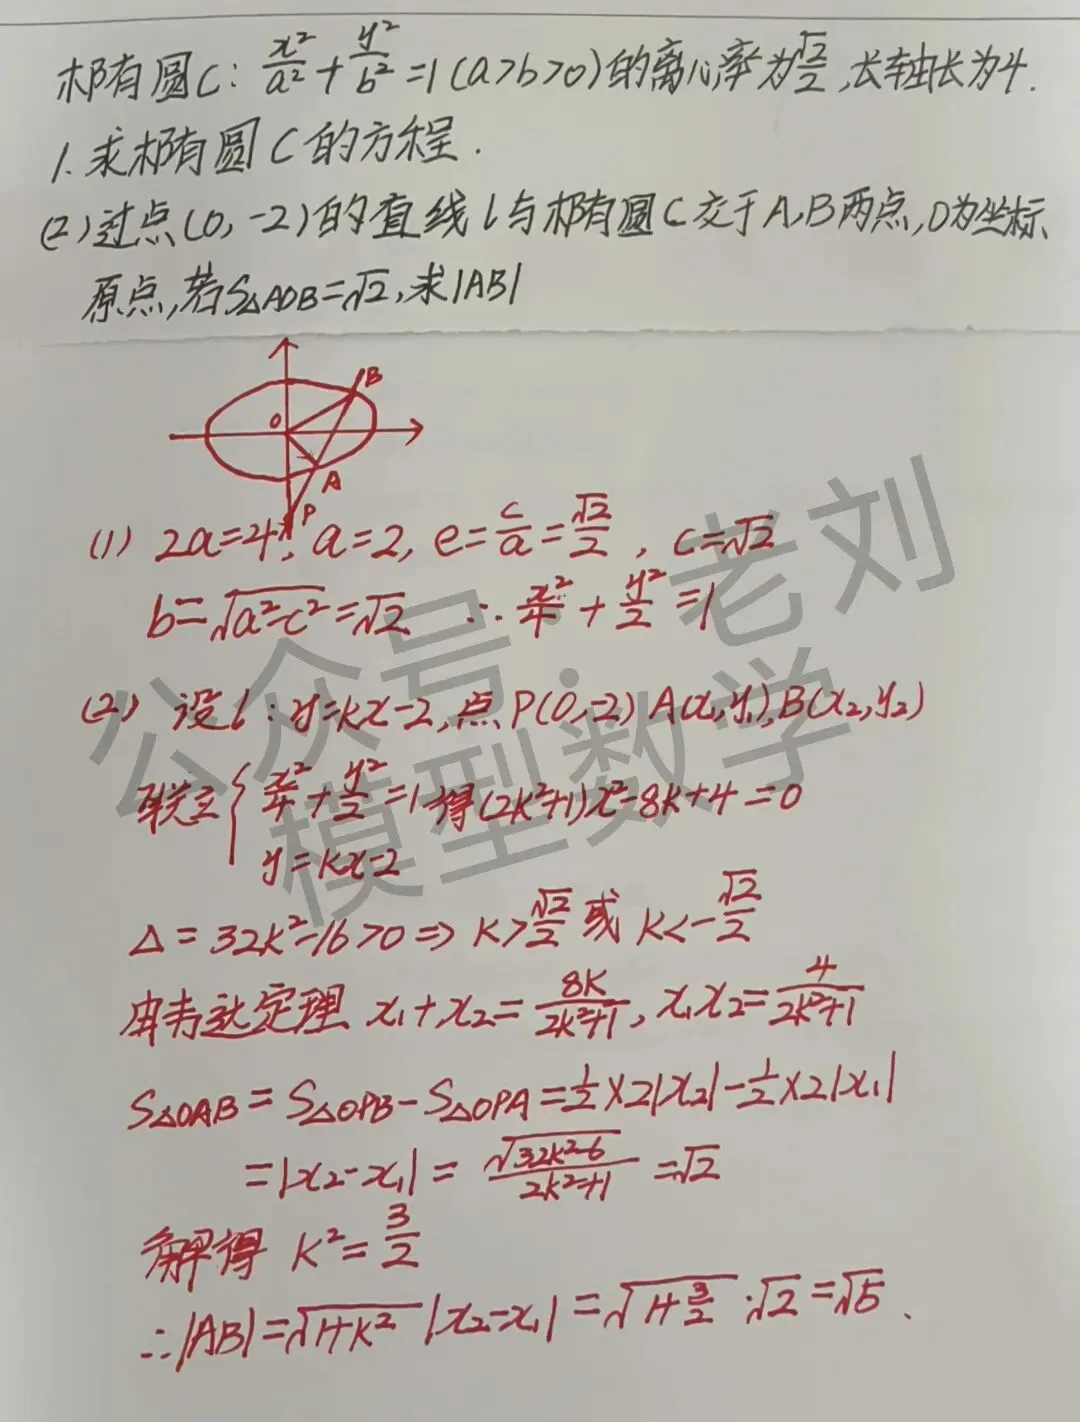 椭圆C: x²/a²+y²/b²=1(a>b>0)的离心率为√2/2,长轴长为4.
1.求椭圆C的方程.
(2)过点(0,-2)的直线l与椭圆C交于A,B两点,O为坐标
原点,若S△AOB=√2,求|AB|
B
O
A
P
(1) 2a=4, a=2, e=c/a=√2/2, c=√2
b=√(a²-c²)=√2 ∴x²/4+y²/2=1
(2) 设l:y=kx-2,点P(0,-2)A(x₁,y₁),B(x₂,y₂)
联立{x²/4+y²/2=1得(2k²+1)x²-8k+4=0
y=kx-2
△=32k²-16>0⇒k>√2/2或k<-√2/2
由韦达定理 x₁+x₂=8k/(2k²+1), x₁x₂=4/(2k²+1)
S△OAB=S△OPB-S△OPA=1/2×2|x₂|-1/2×2|x₁|
=|x₂-x₁|=√(32k²-6)/(2k²+1)=√2
解得 k²=3/2
∴|AB|=√(1+k²)|x₂-x₁|=√(1+3/2)·√2=√5.
公众号:老刘
模型数学